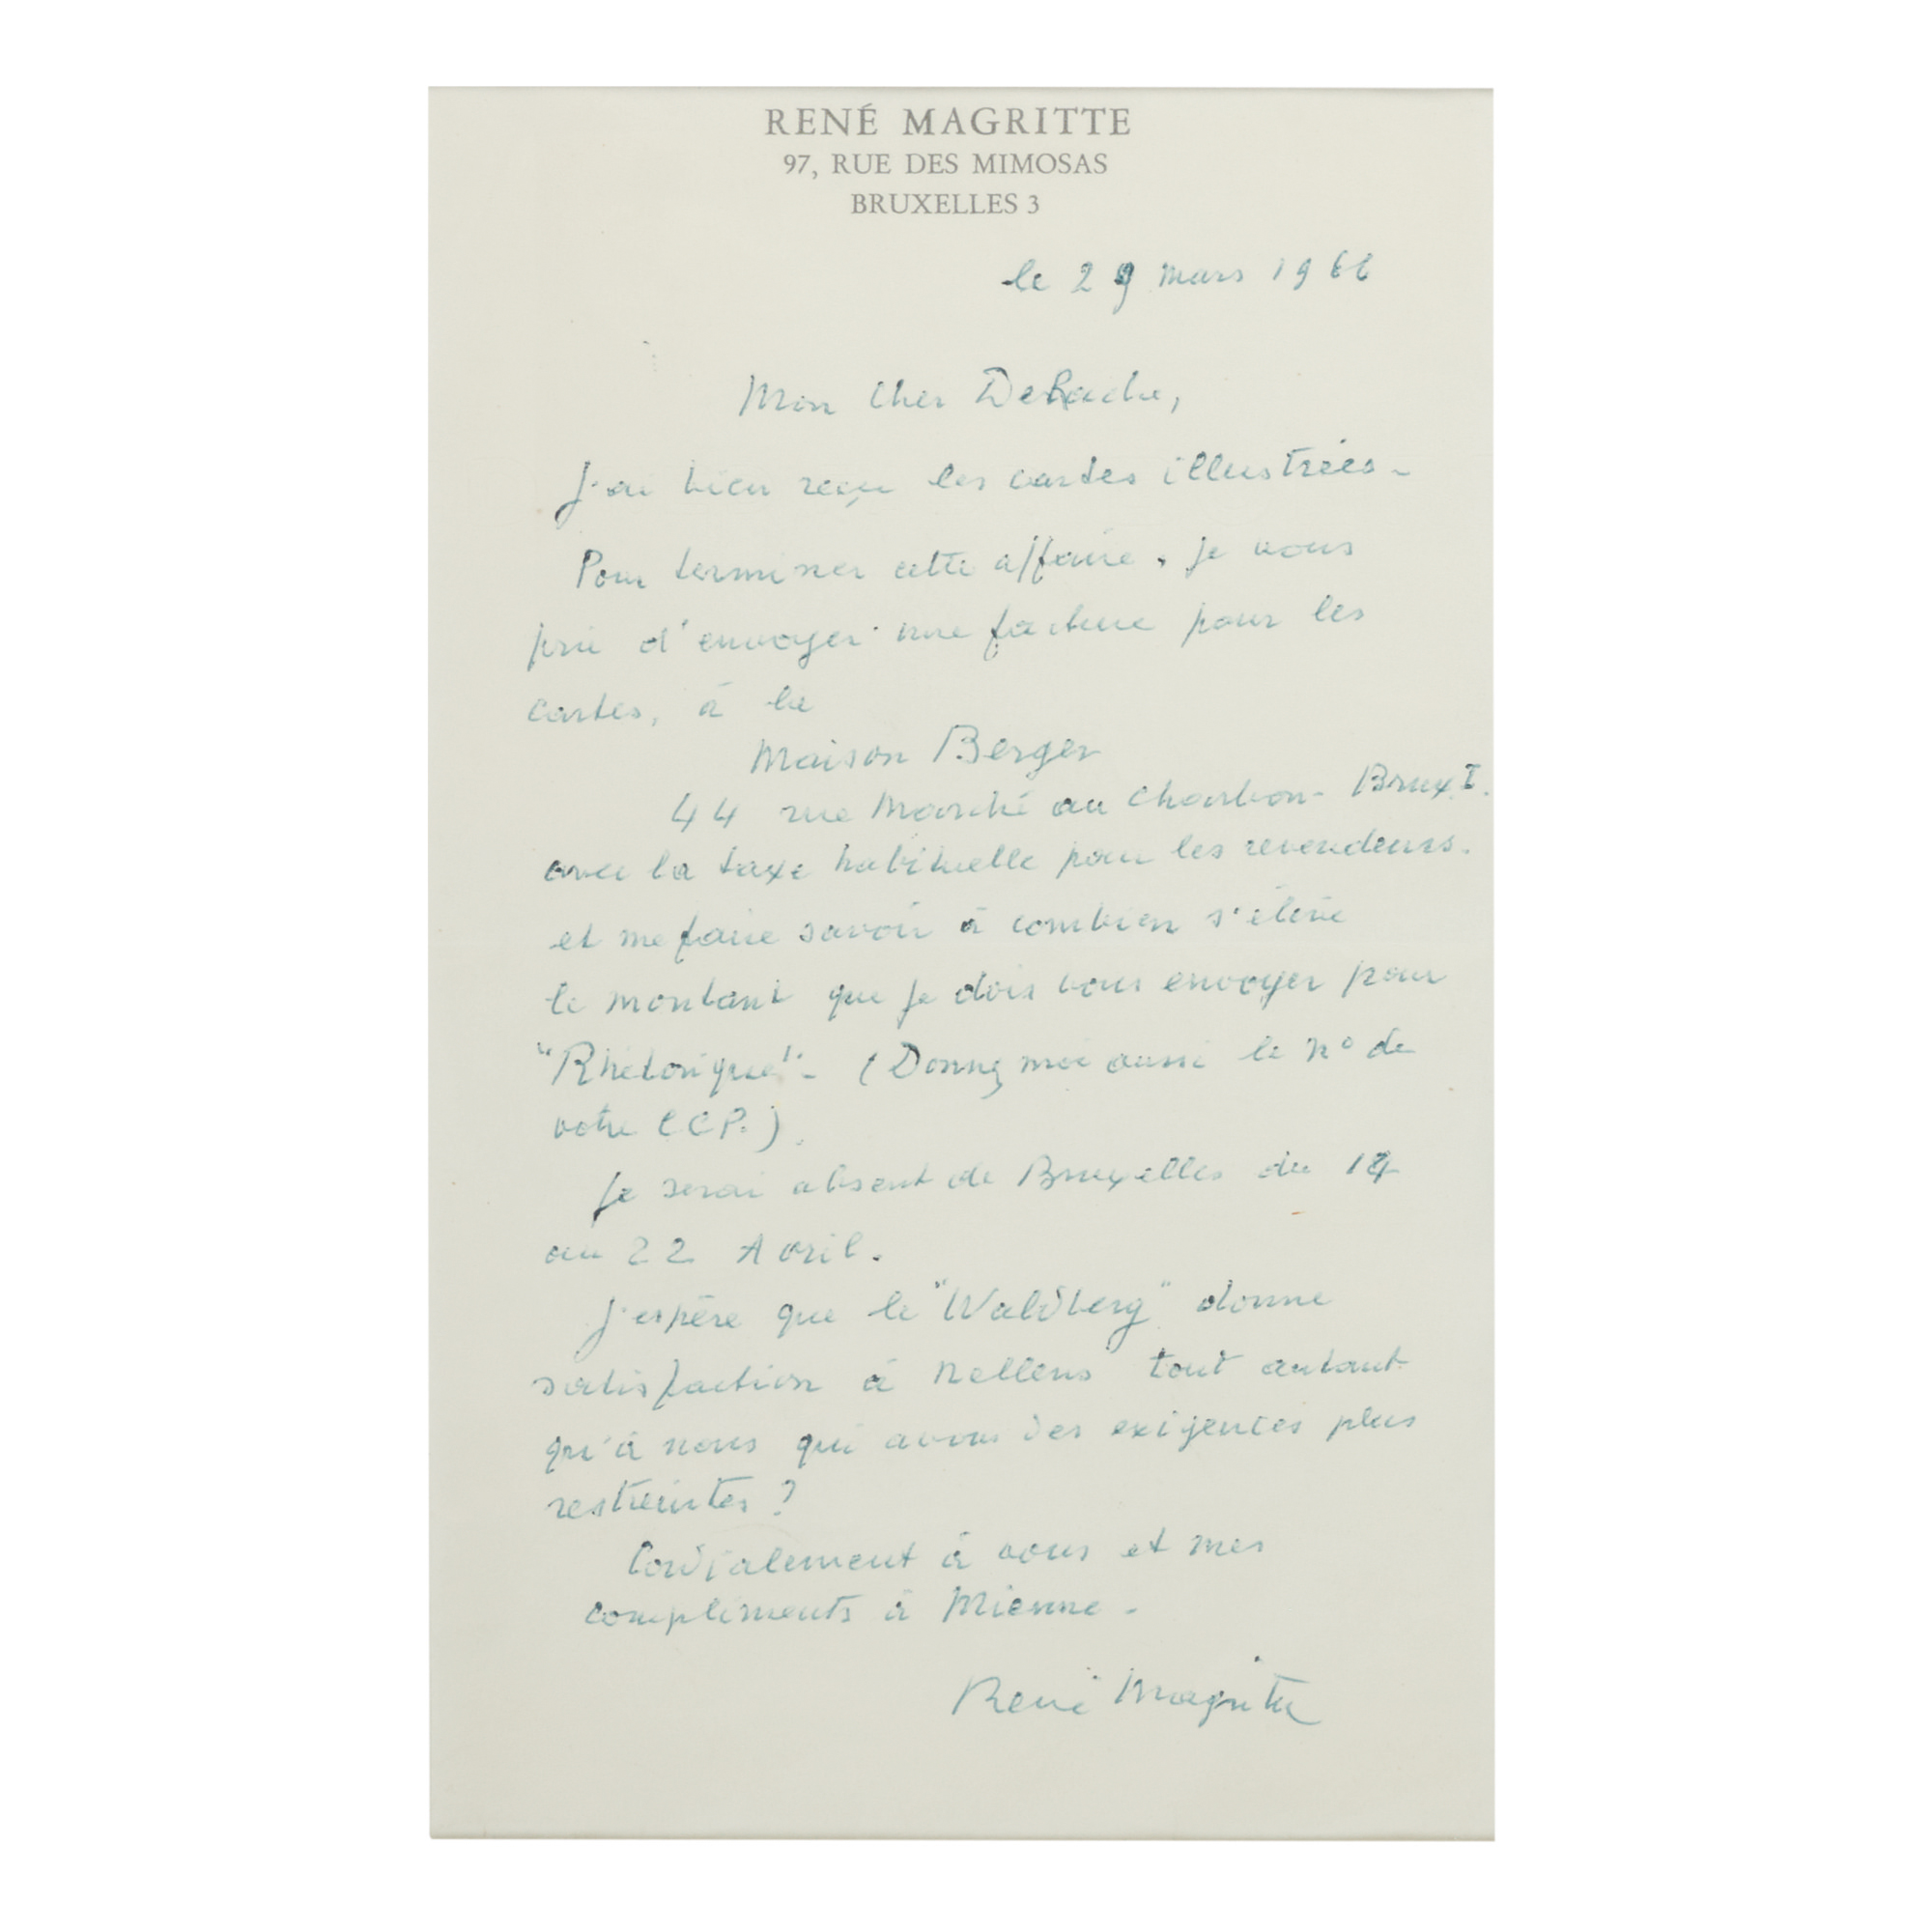 RENÉ MAGRITTE
97, RUE DES MIMOSAS
BRUXELLES 3
le 29 mars 1966
Mon cher DeRache,
J'ai bien reçu les cartes illustrées -
Pour terminer cette affaire, je vous
prie d'envoyer une facture pour les
cartes, à la
Maison Berger
44 rue Marché au Charbon - Brux I.
avec la taxe habituelle pour les revendeurs.
et me faire savoir à combien s'élève
le montant que je dois vous envoyer pour
"Rhétorique" - (Donnez moi aussi le n° de
votre CCP.)
Je serai absent de Bruxelles du
au 22 Avril.
J'espère que le "Waldberg" donne
satisfaction à Nellens tout autant
qu'à nous qui avons des exigences plus
restreintes ?
Cordialement à vous et mes
compliments à Mienne -
René Magritte